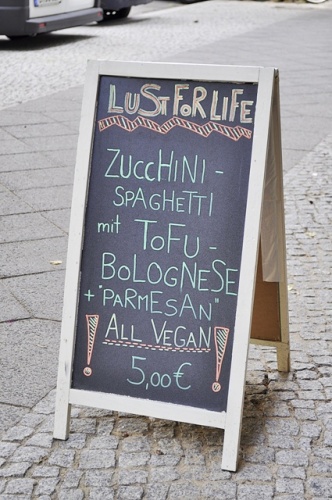 LuSt FOR LIFE
ZuccHiNi-
SPAGHETTI
mit ToFu-
BOLOGNESE
+ "PARMESAN"
! ALL VEGAN !
5,00€